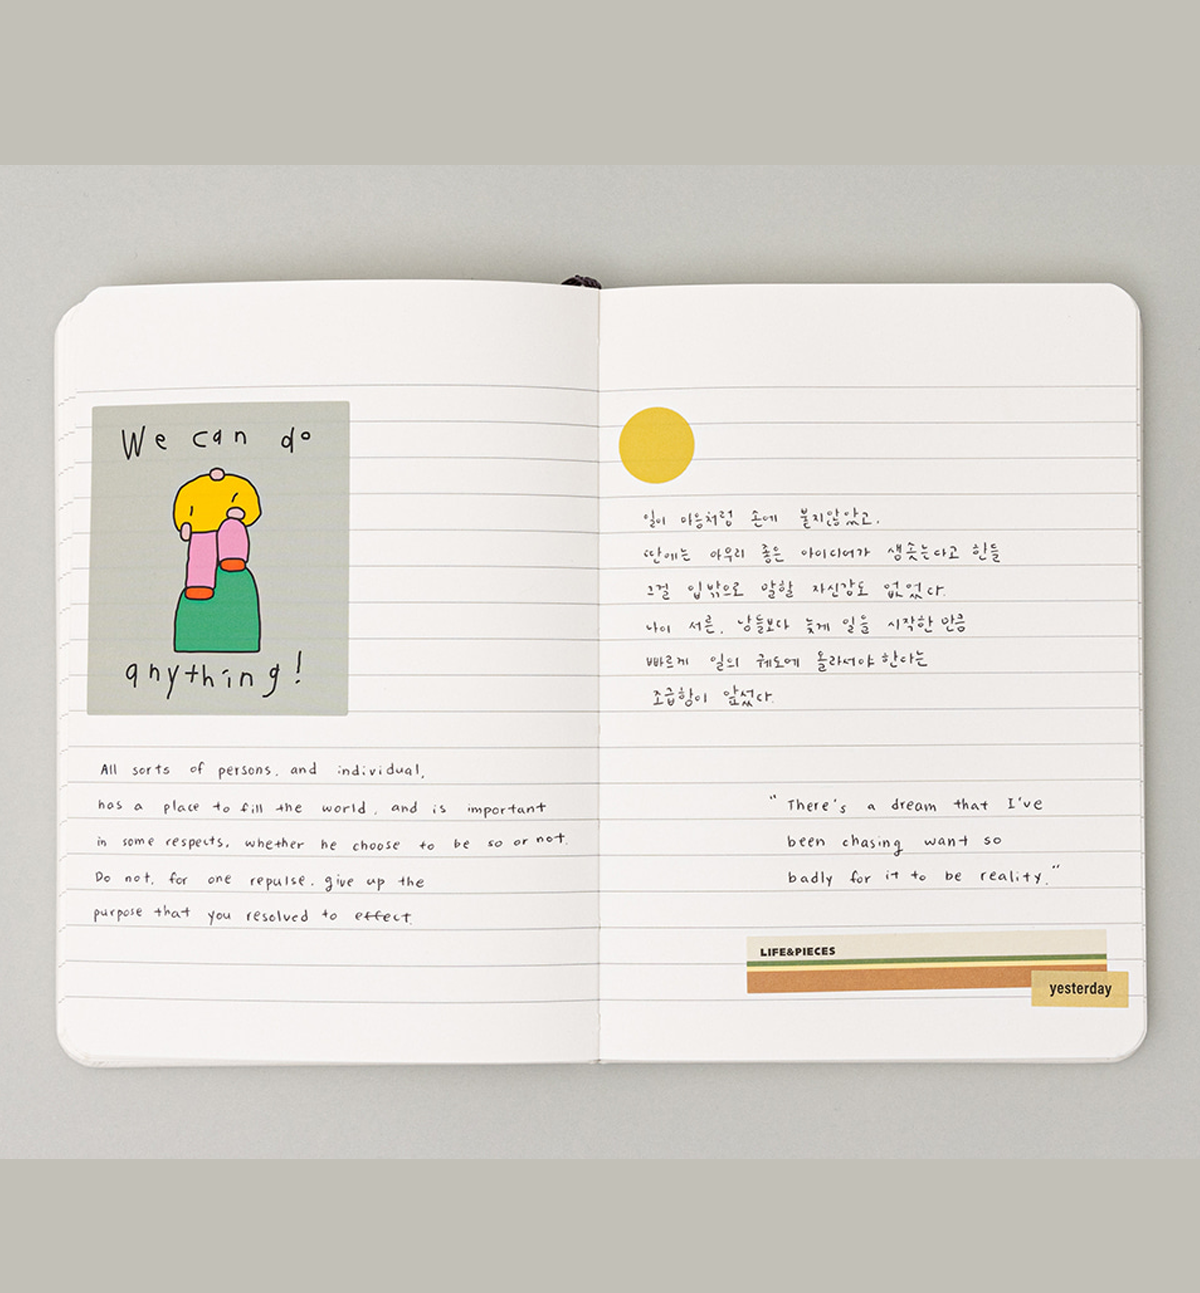 We can do
anything!
All sorts of persons, and individual,
has a place to fill the world, and is important
in some respects, whether he choose to be so or not.
Do not, for one repulse, give up the
purpose that you resolved to effect.
일이 마음처럼 손에 붙지않았고,
딴에는 아무리 좋은 아이디어가 샘솟는다고 한들
그걸 입밖으로 말할 자신감도 없었다.
나이 서른, 남들보다 늦게 일을 시작한 만큼
빠르게 일의 궤도에 올라서야 한다는
조급함이 앞섰다.
“There's a dream that I've
been chasing want so
badly for it to be reality.”
LIFE&PIECES
yesterday